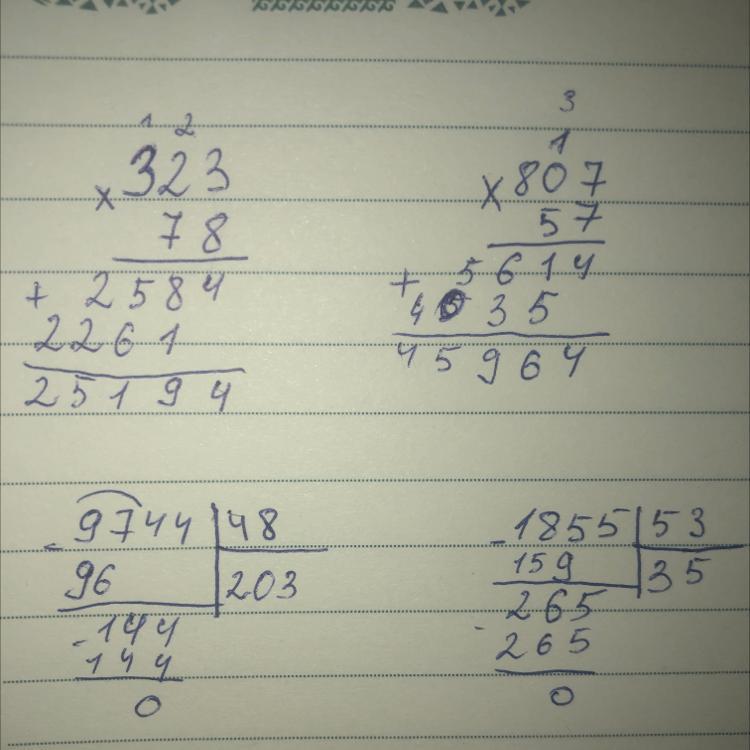 1 2
323
× 78
+ 2584
2261
25194
3
1
× 807
57
+ 5614
4035
45964
- 9744 | 48
96 | 203
- 144
144
0
- 1855 | 53
159 | 35
- 265
265
0